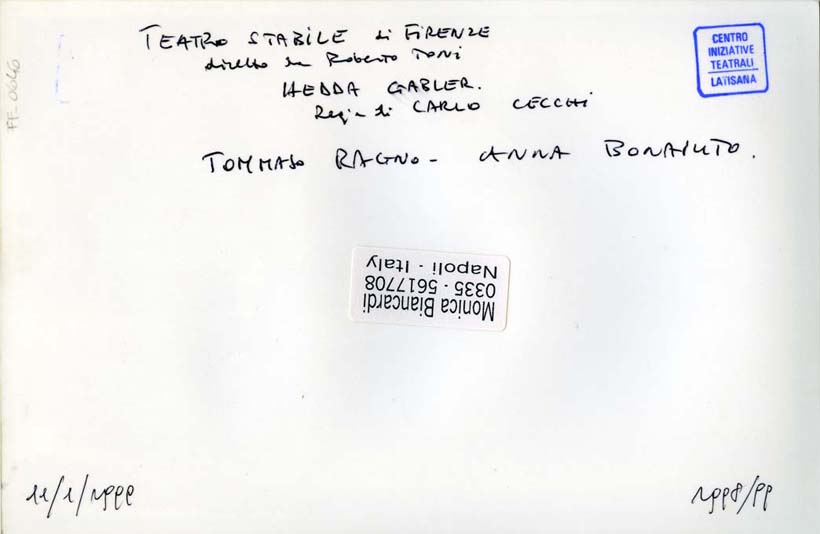 TEATRO STABILE di FIRENZE
diretto da Roberto TONI
HEDDA GABLER.
Regia di CARLO CECCHI
TOMMASO RAGNO - ANNA BONAIUTO.
CENTRO
INIZIATIVE
TEATRALI
LATISANA
FF-0646
Monica Biancardi
0335 - 5617708
Napoli - Italy
11/1/1999
1998/99